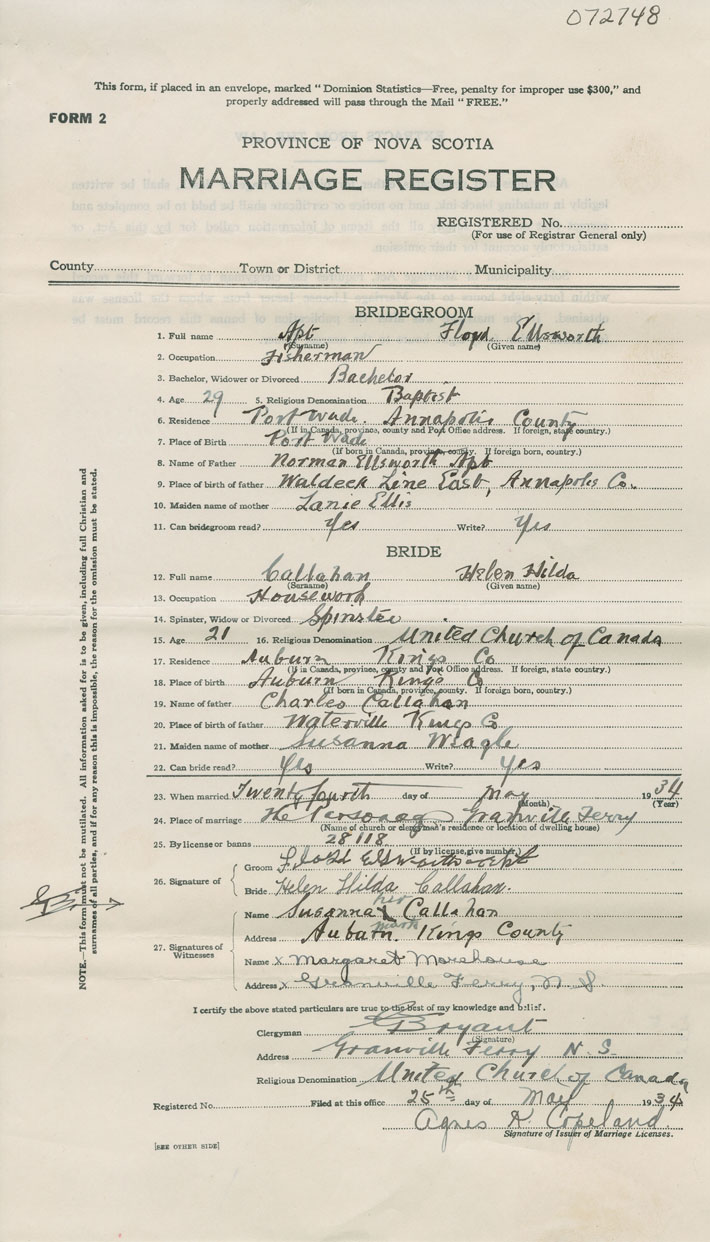 072748
This form, if placed in an envelope, marked "Dominion Statistics—Free, penalty for improper use $300," and
properly addressed will pass through the Mail "FREE."
FORM 2
PROVINCE OF NOVA SCOTIA
MARRIAGE REGISTER
REGISTERED No.
(For use of Registrar General only)
County Town or District Municipality
BRIDEGROOM
1. Full name Apt Floyd Ellsworth
(Surname) (Given name)
2. Occupation Fisherman
3. Bachelor, Widower or Divorced Bachelor
4. Age 29 5. Religious Denomination Baptist
6. Residence Port Wade. Annapolis County
(If in Canada, province, county and Post Office address. If foreign, state country.)
7. Place of Birth Port Wade
(If born in Canada, province, county. If foreign born, country.)
8. Name of Father Norman Ellsworth Apt
9. Place of birth of father Waldeck Line East, Annapolis Co.
10. Maiden name of mother Lanie Ellis
11. Can bridegroom read? Yes Write? Yes
BRIDE
12. Full name Callahan Helen Hilda
(Surname) (Given name)
13. Occupation Housework
14. Spinster, Widow or Divorced Spinster
15. Age 21 16. Religious Denomination United Church of Canada
17. Residence Auburn Kings Co
(If in Canada, province, county and Post Office address. If foreign, state country.)
18. Place of birth Auburn Kings Co
(If born in Canada, province, county. If foreign born, country.)
19. Name of father Charles Callahan
20. Place of birth of father Waterville Kings Co
21. Maiden name of mother Susanna Weagle
22. Can bride read? Yes Write? Yes
23. When married Twenty fourth day of May 1934
(Month) (Year)
24. Place of marriage The Parsonage Granville Ferry
(Name of church or clergyman's residence or location of dwelling house)
25. By license or banns 28118
(If by license, give number)
26. Signature of
Groom Floyd Ellsworth Apt
Bride Helen Hilda Callahan.
27. Signatures of Witnesses
her
Name Susanna X Callahan
mark
Address Auburn. Kings County
Name x Margaret Morehouse
Address x Granville Ferry, N. S.
I certify the above stated particulars are true to the best of my knowledge and belief.
Clergyman Bryant
(Signature)
Address Granville Ferry N. S.
Religious Denomination United Church of Canada
Registered No. Filed at this office 25th day of May 1934
Agnes K Copeland
Signature of Issuer of Marriage Licenses.
[SEE OTHER SIDE]
NOTE.—This form must not be mutilated. All information asked for is to be given, including full Christian and
surnames of all parties, and if for any reason this is impossible, the reason for the omission must be stated.